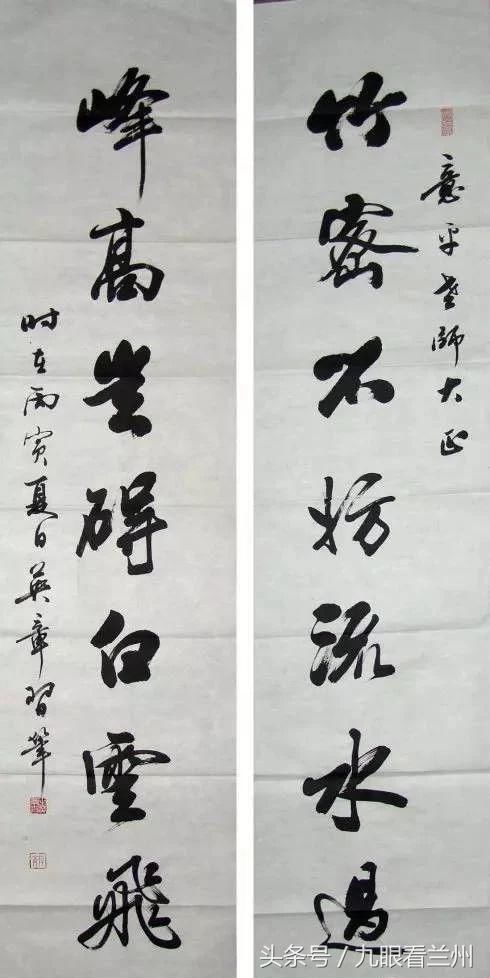 意平老師大正
竹密不妨流水過
峰高豈碍白雲飛
时在丙寅夏日英章習筆
头条号/九眼看兰州